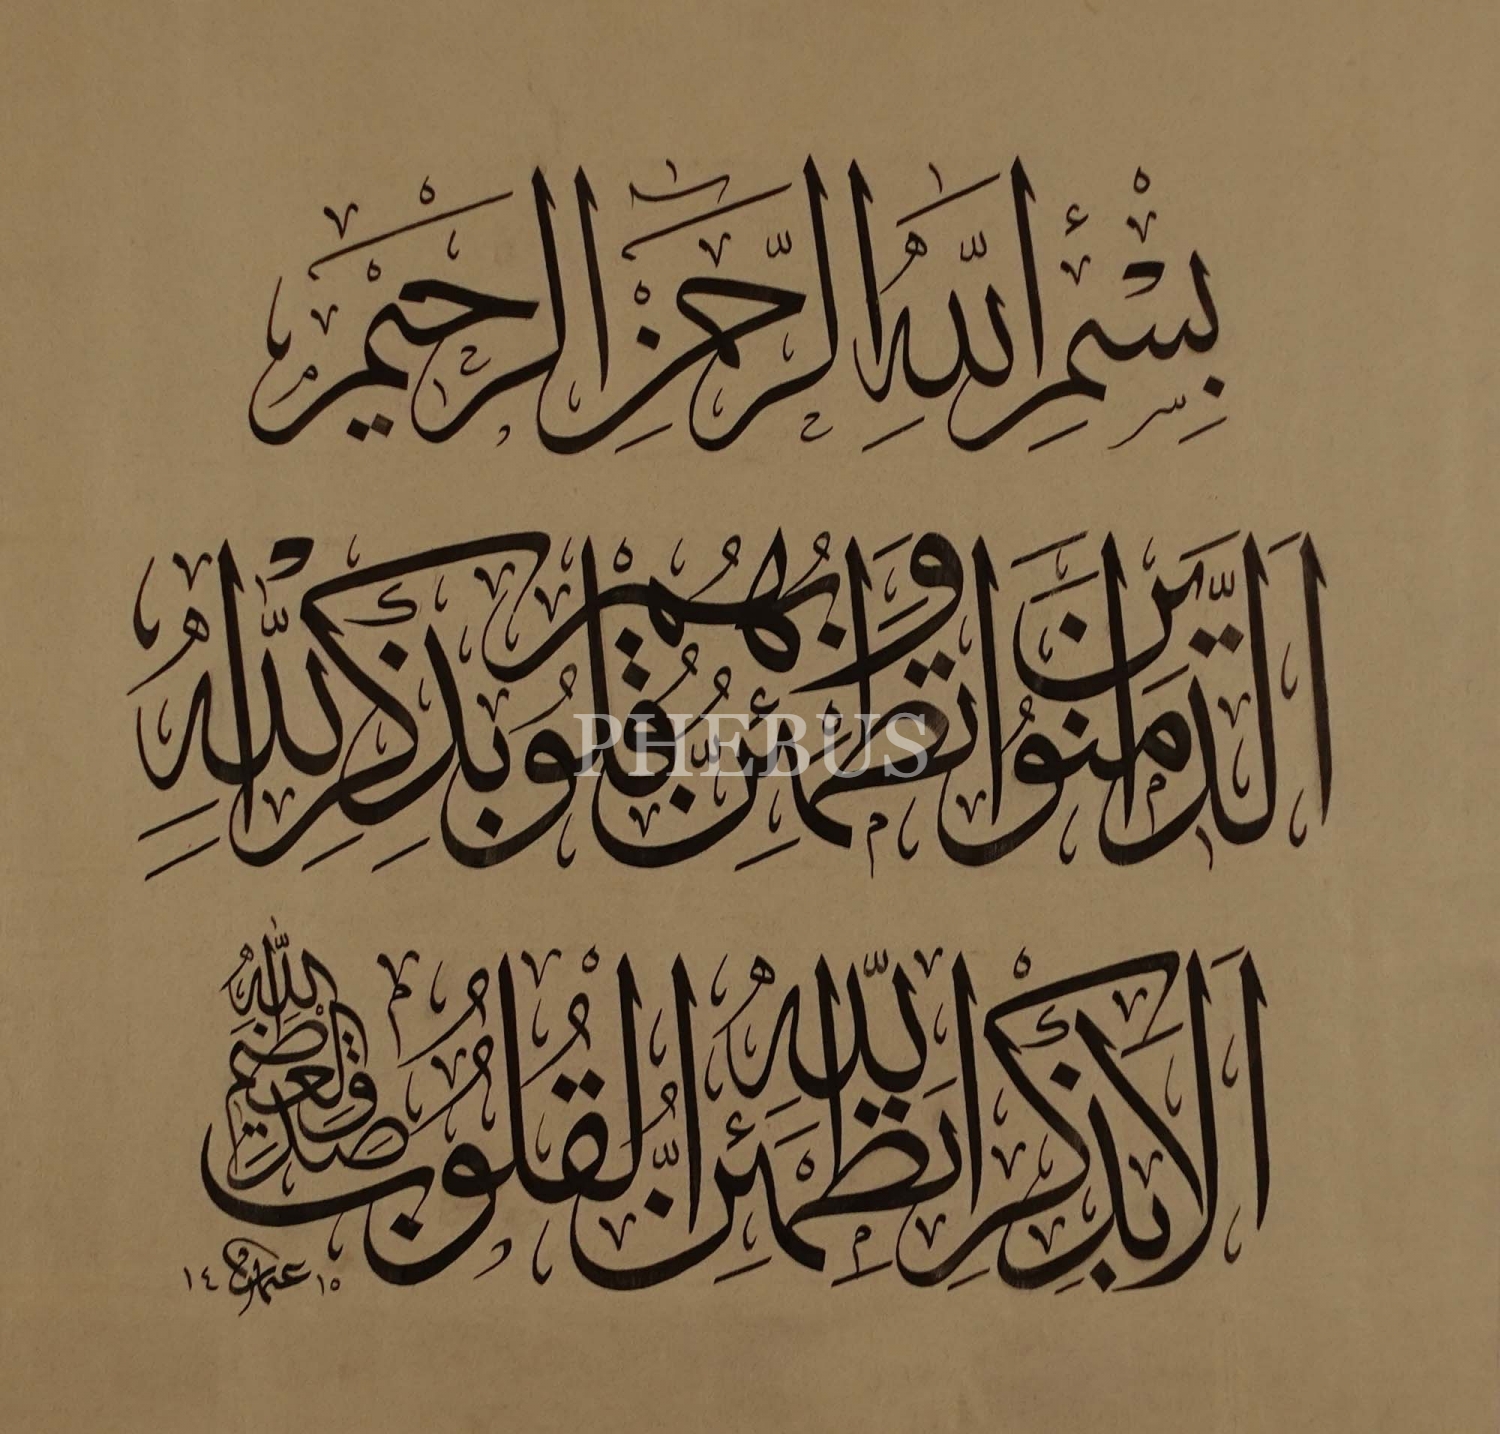 بِسْمِ اللَّهِ الرَّحْمَٰنِ الرَّحِيمِ
الَّذِينَ آمَنُوا وَتَطْمَئِنُّ قُلُوبُهُمْ بِذِكْرِ اللَّهِ
أَلَا بِذِكْرِ اللَّهِ تَطْمَئِنُّ الْقُلُوبُ
صدق الله العظيم
PHEBUS